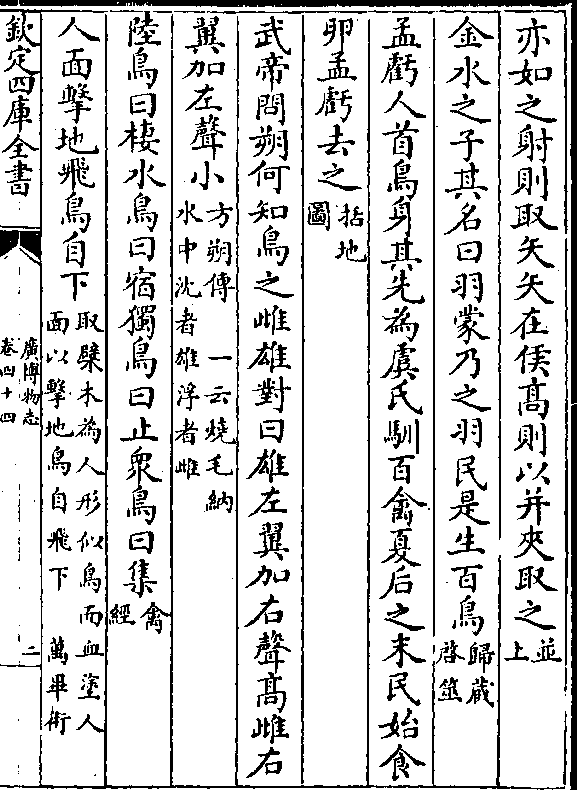 亦如之射則取矢矢在侯髙則以并夾取之並上
金水之子其名曰羽蒙乃之羽民是生百鳥歸藏啓筮
孟虧人首鳥身其先為虞氏馴百禽夏后之末民始食
卵孟虧去之括地圖
武帝問朔何知鳥之雌雄對曰雄左翼加右聲髙雌右
翼加左聲小方朔傳　一云燒毛納水中沈者雄浮者雌
陸鳥曰棲水鳥曰宿獨鳥曰止衆鳥曰集禽經
人面擊地飛鳥自下取𣚦木為人形似鳥而血塗人面以擊地鳥自飛下　萬畢術
欽定四庫全書
廣博物志
卷四十四
二